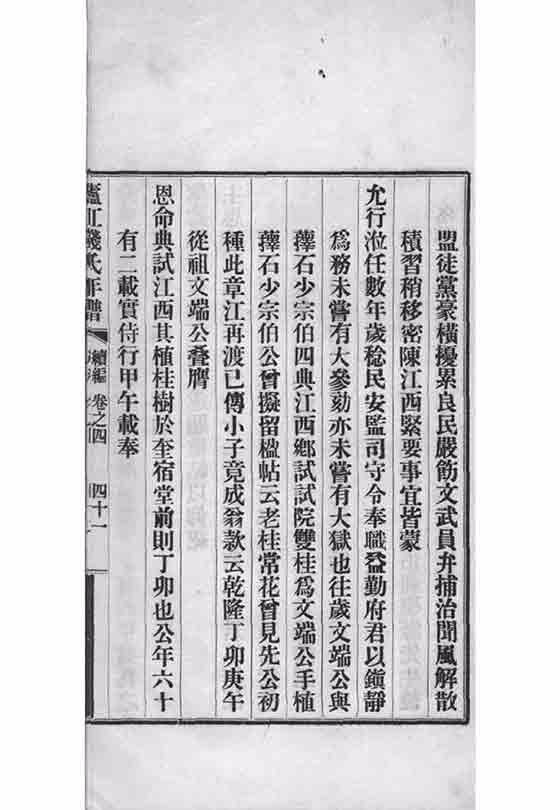 盟徒黨豪橫擾累良民嚴飭文武員弁捕治聞風解散
積習稍移密陳江西緊要事宜皆蒙
允行涖任數年歲稔民安監司守令奉職益勤府君以鎭靜
爲務未嘗有大參劾亦未嘗有大獄也往歲文端公與
蘀石少宗伯四典江西鄉試試院雙桂爲文端公手植
蘀石少宗伯公曾擬留楹帖云老桂常花曾見先公初
種此章江再渡已傳小子竟成翁款云乾隆丁卯庚午
從祖文端公疊膺
恩命典試江西其植桂樹於奎宿堂前則丁卯也公年六十
有二載實侍行甲午載奉
廬江錢氏年譜 續編 卷之四 四十一